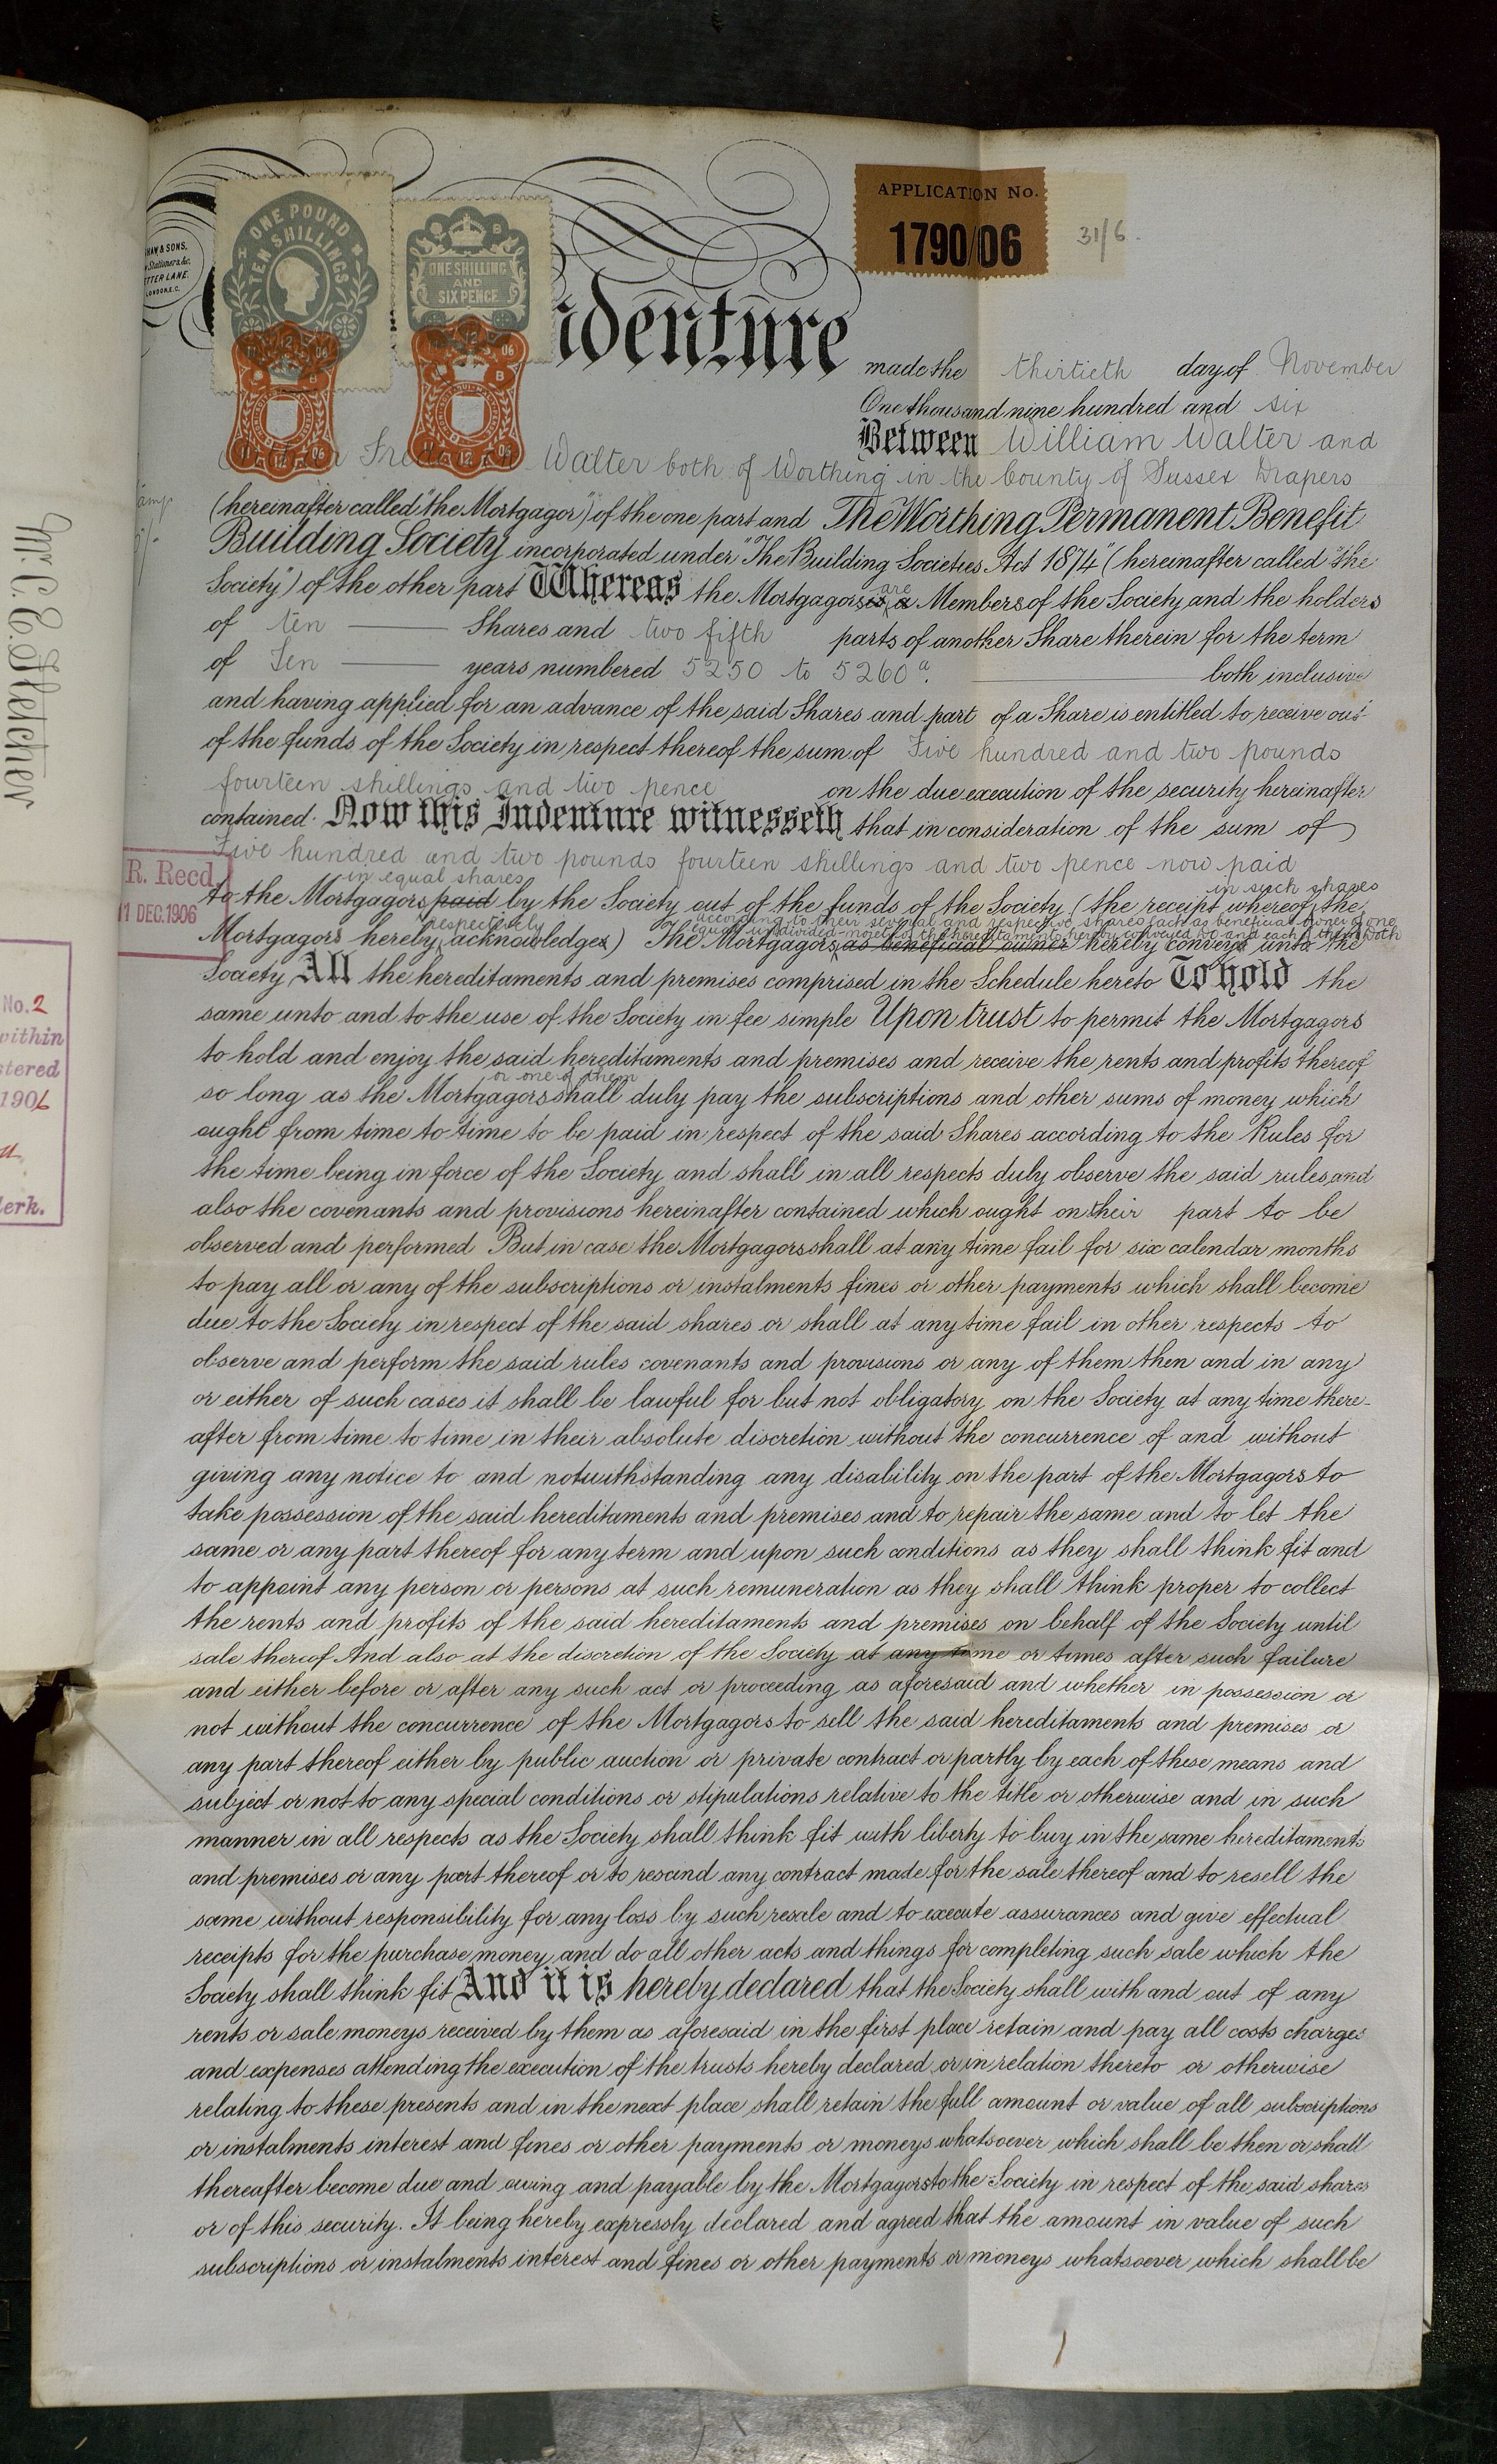 Mr. C. E. Fletcher
No. 2
within
1906
R. Recd
11 DEC. 1906
& SONS,
LONDON, E.C.
ONE POUND
TEN SHILLINGS
ONE SHILLING
AND
SIX PENCE
APPLICATION No.
1790/06
31/6.
Indenture made the thirtieth day of November
One thousand nine hundred and six
Between William Walter and
Walter both of Worthing in the County of Sussex Drapers
(hereinafter called "the Mortgagor") of the one part and The Worthing Permanent Benefit
Building Society incorporated under "The Building Societies Act 1874" (hereinafter called "the
Society") of the other part Whereas the Mortgagors is a are Members of the Society and the holders
of ten Shares and two fifth parts of another Share therein for the term
of Ten years numbered 5250 to 5260a. both inclusive
and having applied for an advance of the said Shares and part of a Share is entitled to receive out
of the funds of the Society in respect thereof the sum of Five hundred and two pounds
fourteen shillings and two pence on the due execution of the security hereinafter
contained. Now this Indenture witnesseth that in consideration of the sum of
Five hundred and two pounds fourteen shillings and two pence now paid
in equal shares
to the Mortgagors paid by the Society out of the funds of the Society (the receipt whereof in such shares the
respectively according to their several and respective shares each as beneficial owner of one
equal undivided moiety of the hereditaments hereby conveyed do and each of them doth
Mortgagors hereby acknowledges) The Mortgagors as beneficial owner hereby conveys unto the
Society All the hereditaments and premises comprised in the Schedule hereto To hold the
same unto and to the use of the Society in fee simple Upon trust to permit the Mortgagors
to hold and enjoy the said hereditaments and premises and receive the rents and profits thereof
or one of them
so long as the Mortgagors shall duly pay the subscriptions and other sums of money which
ought from time to time to be paid in respect of the said Shares according to the Rules for
the time being in force of the Society and shall in all respects duly observe the said rules and
also the covenants and provisions hereinafter contained which ought on their part to be
observed and performed But in case the Mortgagors shall at any time fail for six calendar months
to pay all or any of the subscriptions or instalments fines or other payments which shall become
due to the Society in respect of the said shares or shall at any time fail in other respects to
observe and perform the said rules covenants and provisions or any of them then and in any
or either of such cases it shall be lawful for but not obligatory on the Society at any time there-
after from time to time in their absolute discretion without the concurrence of and without
giving any notice to and notwithstanding any disability on the part of the Mortgagors to
take possession of the said hereditaments and premises and to repair the same and to let the
same or any part thereof for any term and upon such conditions as they shall think fit and
to appoint any person or persons at such remuneration as they shall think proper to collect
the rents and profits of the said hereditaments and premises on behalf of the Society until
sale thereof And also at the discretion of the Society at any time or times after such failure
and either before or after any such act or proceeding as aforesaid and whether in possession or
not without the concurrence of the Mortgagors to sell the said hereditaments and premises or
any part thereof either by public auction or private contract or partly by each of these means and
subject or not to any special conditions or stipulations relative to the title or otherwise and in such
manner in all respects as the Society shall think fit with liberty to buy in the same hereditaments
and premises or any part thereof or to rescind any contract made for the sale thereof and to resell the
same without responsibility for any loss by such resale and to execute assurances and give effectual
receipts for the purchase money and do all other acts and things for completing such sale which the
Society shall think fit And it is hereby declared that the Society shall with and out of any
rents or sale moneys received by them as aforesaid in the first place retain and pay all costs charges
and expenses attending the execution of the trusts hereby declared or in relation thereto or otherwise
relating to these presents and in the next place shall retain the full amount or value of all subscriptions
or instalments interest and fines or other payments or moneys whatsoever which shall be then or shall
thereafter become due and owing and payable by the Mortgagors to the Society in respect of the said shares
or of this security. It being hereby expressly declared and agreed that the amount in value of such
subscriptions or instalments interest and fines or other payments or moneys whatsoever which shall be